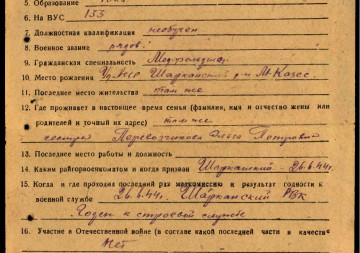 5. Образование
6. На ВУС 133
7. Должностная квалификация необучен
8. Военное звание рядов.
9. Гражданская специальность
10. Место рождения Шарканский р-н
11. Последнее место жительства там же
12. Где проживает в настоящее время семья (фамилия, имя и отчество жены или
родителей и точный их адрес) там же
Перевозчикова Ольга Петровна
13. Последнее место работы и должность
14. Каким райгорвоенкоматом и когда призван Шарканский 26.6.44г.
15. Когда и где проходил последний раз медкомиссию и результат годности к
военной службе 26.6.44г. Шарканский РВК
Годен к строевой службе
16. Участие в Отечественной войне (в составе какой последней части и качестве
Нет